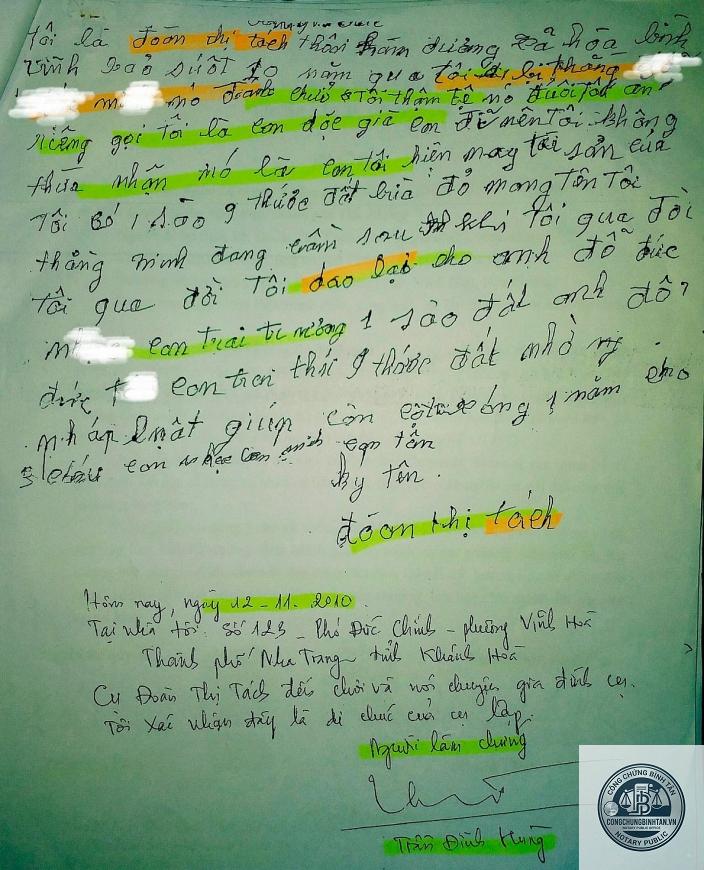 tôi là đoàn thị tách thôn hàm dương xã hòa bình
vĩnh bảo suốt 10 năm qua tôi bị thằng
nó đánh chửi tôi thậm tệ nó đuổi tôi ăn
riêng gọi tôi là con độc giã con đĩ nên tôi không
thừa nhận nó là con tôi hiện nay tài sản của
tôi có 1 sào 9 thước đất bìa đỏ mang tên tôi
thằng minh đang cầm sau khi tôi qua đời
tôi qua đời tôi dao lại cho anh đỗ đức
con trai tr 1 sào đất anh đỗ
đức con trai thứ 9 thước đất nhờ
pháp luật giúp còn 1 năm cho
3 cháu con
ký tên.
đóan thị tách
Hôm nay, ngày 12-11-2010.
Tại nhà tôi: Số 123 - Phó Đức Chính - phường Vĩnh Hoà
Thành phố Nha Trang tỉnh Khánh Hoà
Cụ Đoàn Thị Tách đến chơi và nói chuyện gia đình cụ.
Tôi xác nhận đây là di chúc của cụ lập.
Người làm chứng
Trần Đình Hùng
CÔNG CHỨNG BÌNH TÂN
CONGCHUNGBINHTAN.VN
NOTARY PUBLIC OFFICE
NOTARY PUBLIC